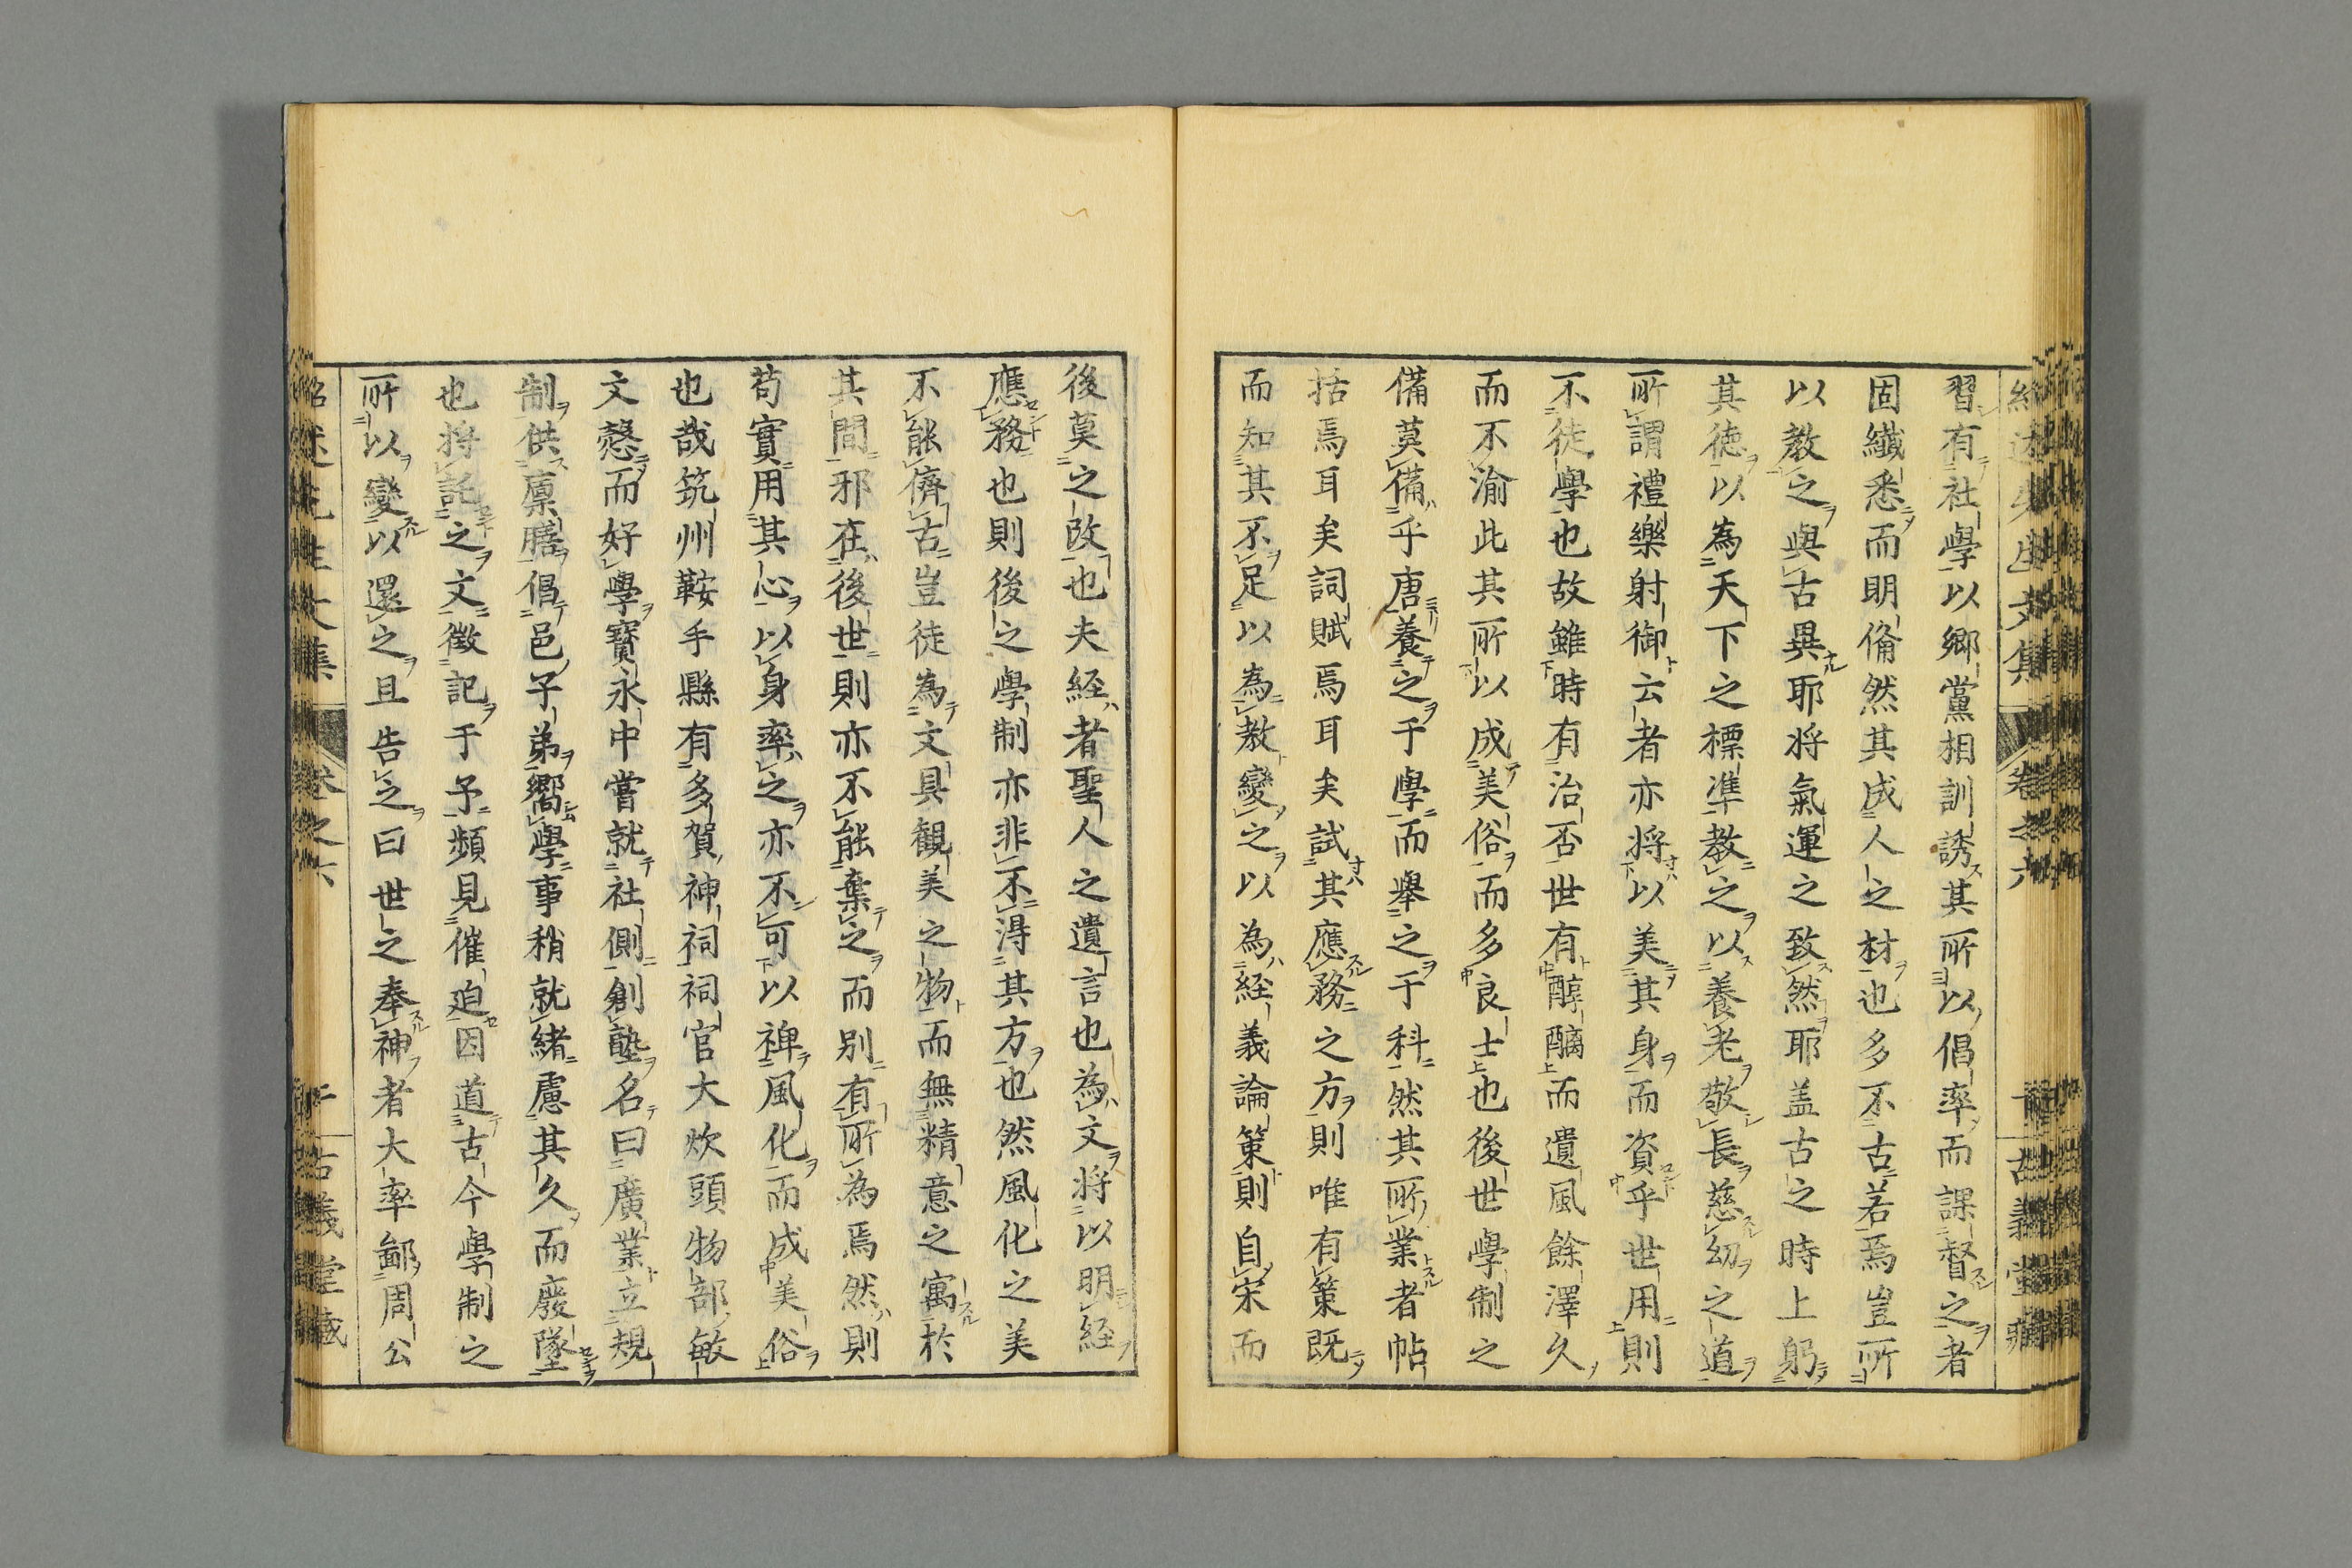 習有社學以鄉黨相訓誘其所以倡率而課督之者
固纎悉而明備然其成人之材也多不古若焉豈所
以教之與古異耶將氣運之致然耶盖古之時上躬
其徳以為天下之標準教之以養老敬長慈幼之道
所謂禮樂射御云者亦將以美其身而資乎世用則
不徒學也故雖時有治否世有醇醨而遺風餘澤久
而不渝此其所以成美俗而多良士也後世學制之
備莫備乎唐養之于學而舉之于科然其所業者帖
括焉耳矣詞賦焉耳矣試其應務之方則唯有策既
而知其不足以為教變之以為経義論策則自宋而
後莫之改也夫経者聖人之遺言也為文將以明経
應務也則後之學制亦非不得其方也然風化之美
不能儕古豈徒為文具觀美之物而無精意之寓於
其間邪在後世則亦不能棄之而别有所為焉然則
苟實用其心以身率之亦不可以裨風化而成美俗
也哉筑州鞍手縣有多賀神祠祠官大炊頭物部敏
文愨而好學寳永中嘗就社側創塾名曰廣業立規
制供廩膳倡邑子弟嚮學事稍就緒慮其久而廢墜
也將託之文徵記于予頻見催迫因道古今學制之
所以變以還之且告之曰世之奉神者大率鄙周公
紹述先生文集 卷之六 古義堂藏